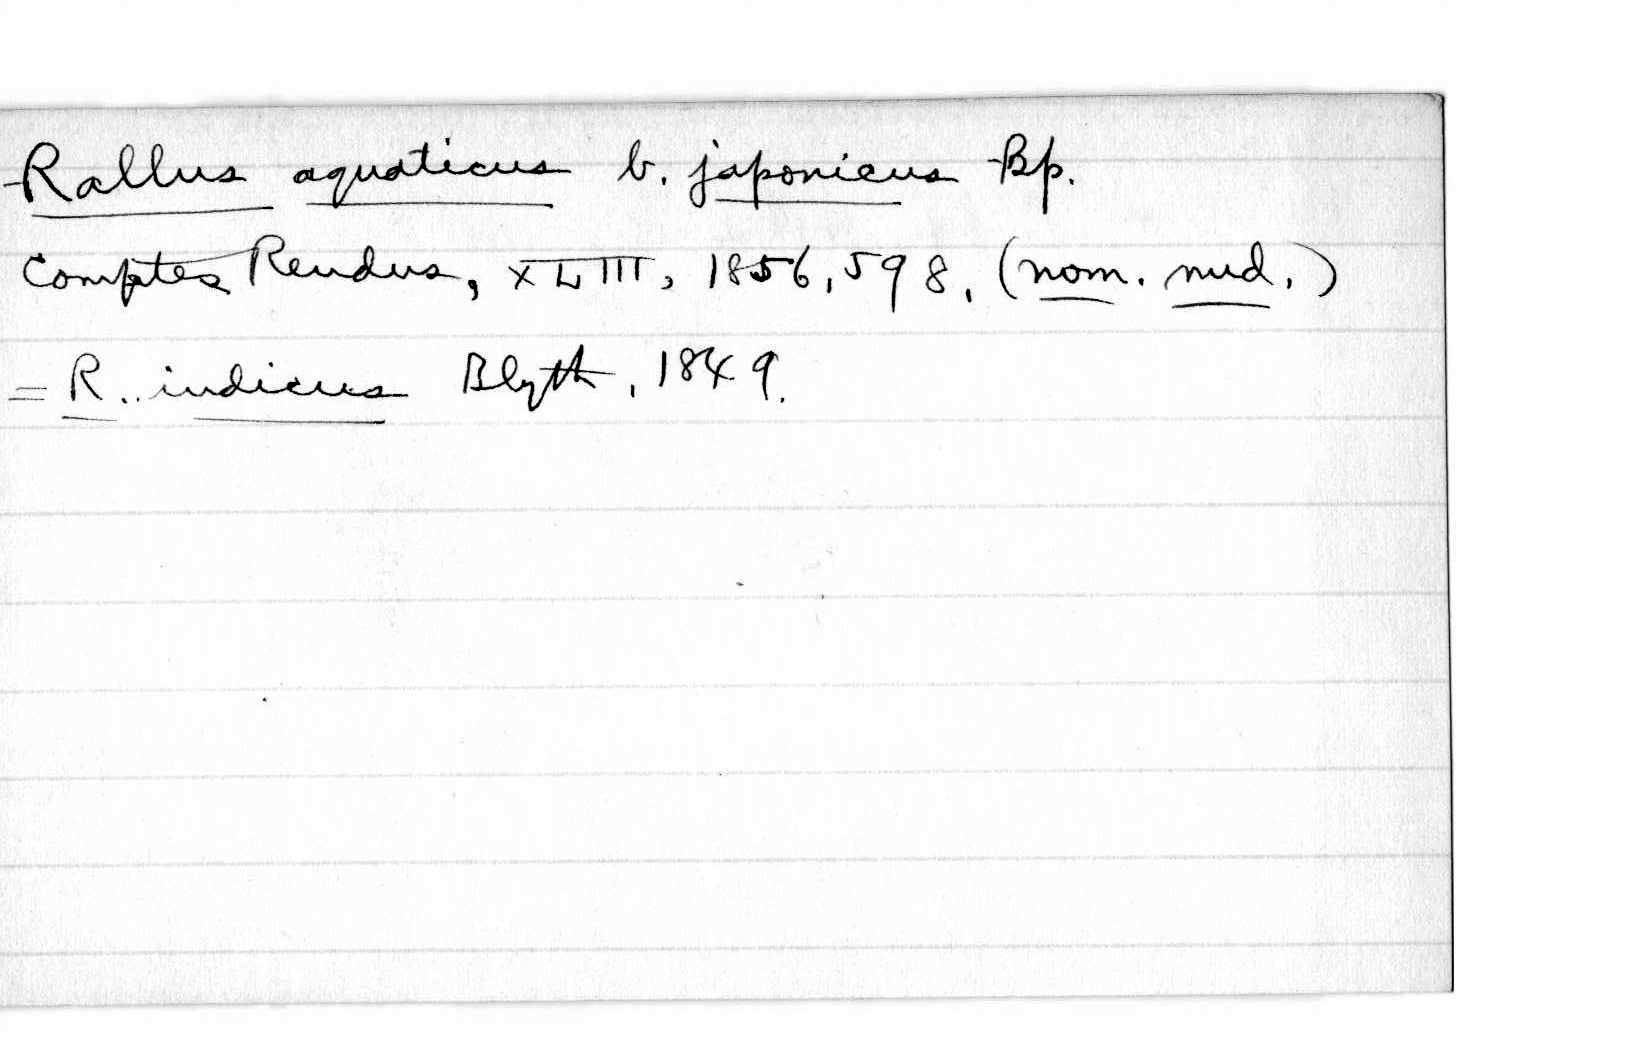 Rallus aquaticus b. japonicus Bp.
Comptes Rendus, XLIII, 1856, 598. (nom. nud.)
= R. indicus Blyth, 1849.